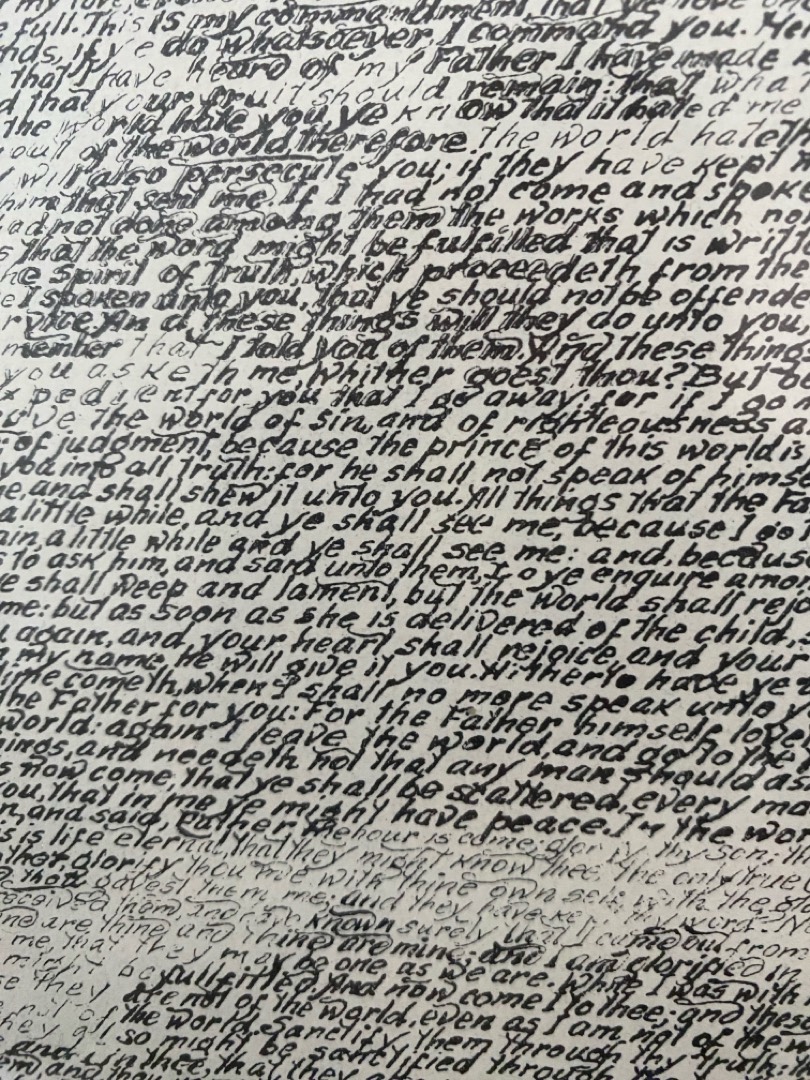 full. This is my commandment, that ye love one
if ye do whatsoever I command you. Hen
that I have heard of my Father I have made k
d that your fruit should remain: that wha
the world hate you, ye know that it hated me
out of the world, therefore the world hateth
will also persecute you; if they have kept m
him that sent me. If I had not come and spok
ad not done among them the works which no
s that the word might be fulfilled that is writt
he spirit of truth, which proceedeth from the
e I spoken unto you, that ye should not be offende
rvice. And these things will they do unto you,
member that I told you of them. And these things
you asketh me, Whither goest thou? But b
xpedient for you that I go away: for if I go n
ove the world of sin, and of righteousness a
of judgment, because the prince of this world is
you into all truth: for he shall not speak of himse
e, and shall shew it unto you. All things that the Fa
a little while, and ye shall see me, because I go
ain, a little while and ye shall see me: and, because
s to ask him, and said unto them, Do ye enquire amon
ye shall weep and lament, but the world shall rejo
me: but as soon as she is delivered of the child, s
u again, and your heart shall rejoice, and your
n my name, he will give it you. Hitherto have ye
time cometh, when I shall no more speak unto y
the Father for you: For the Father himself love
world: again I leave the world, and go to the
hings, and needeth not that any man should as
s now come, that ye shall be scattered, every ma
ou, that in me ye might have peace. In the wor
n, and said, Father, the hour is come; glorify thy Son, th
s is life eternal, that they might know thee the only true
ther glorify thou me with thine own self with the gl
thou gavest them me; and they have kept thy word. N
received them, and have known surely that I came out from
ine are thine, and thine are mine; and I am glorified in
me, that they may be one as we are. While I was with
might be fullfilled. And now come I to thee; and these
se they are not of the world, even as I am not of the w
the world. Sanctify them through thy truth: th
they all so might be sanctified through
in thee, that they